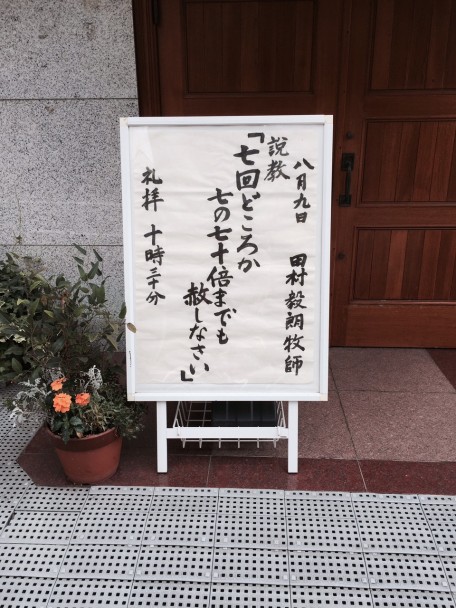 八月九日 田村毅朗牧師
説教
「七回どころか
七の七十倍までも
赦しなさい」
礼拝 十時三十分